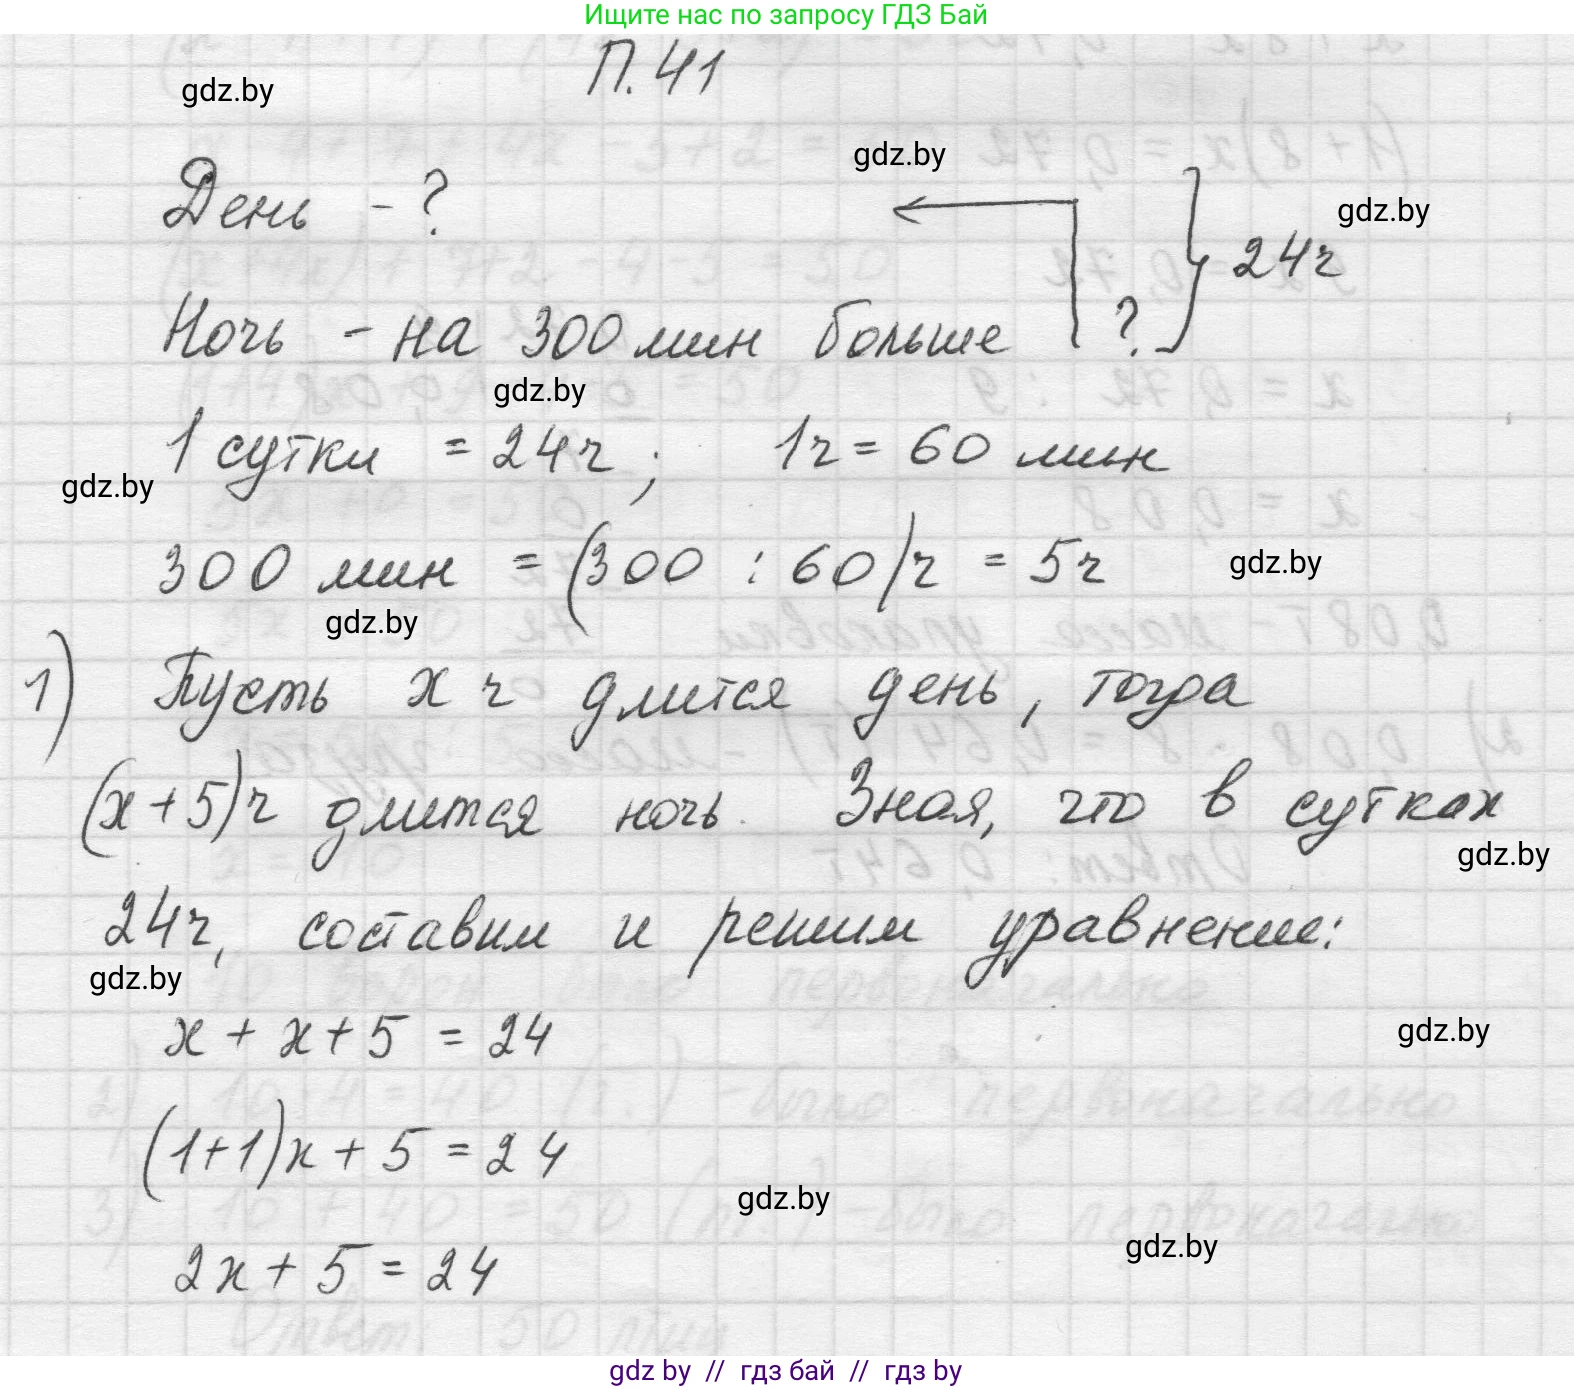 Ищите нас по запросу ГДЗ Бай
П.41
gdz.by
gdz.by
День - ?
gdz.by
24ч
Ночь - на 300 мин больше ?
gdz.by
1 сутки = 24ч; 1ч = 60 мин
gdz.by
300 мин = (300 : 60)ч = 5ч
gdz.by
gdz.by
1) Пусть х ч длится день, тогда
(х+5)ч длится ночь. Зная, что в сутках
gdz.by
24ч, составим и решим уравнение:
gdz.by
х + х + 5 = 24
gdz.by
(1+1)х + 5 = 24
gdz.by
gdz.by
2х + 5 = 24
gdz by // гдз бай // гдз by